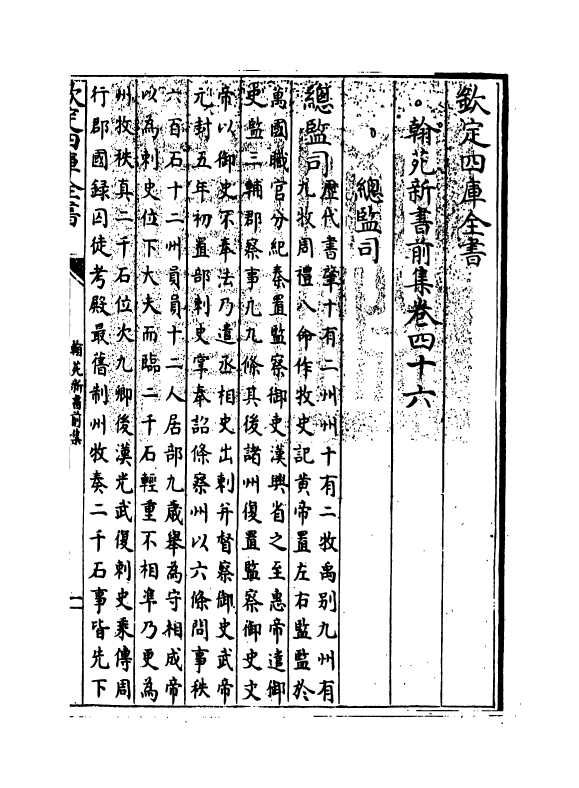 欽定四庫全書
翰苑新書前集卷四十六
總監司
總監司
歷代書肇十有二州州十有二牧禹別九州有
九牧周禮八命作牧史記黄帝置左右監監於
萬國職官分紀秦置監察御史漢興省之至惠帝遣御
史監三輔郡察事凡九條其後諸州復置監察御史文
帝以御史不奉法乃遣丞相史出刺并督察御史武帝
元封五年初置部刺史掌奉詔條察州以六條問事秩
六百石十二州員員十二人居部九歲舉為守相成帝
以為刺史位下大夫而臨二千石輕重不相準乃更為
州牧秩真二千石位次九卿後漢光武復刺史乘傳周
行郡國録囚徒考殿最舊制州牧奏二千石事皆先下
欽定四庫全書
翰苑新書前集